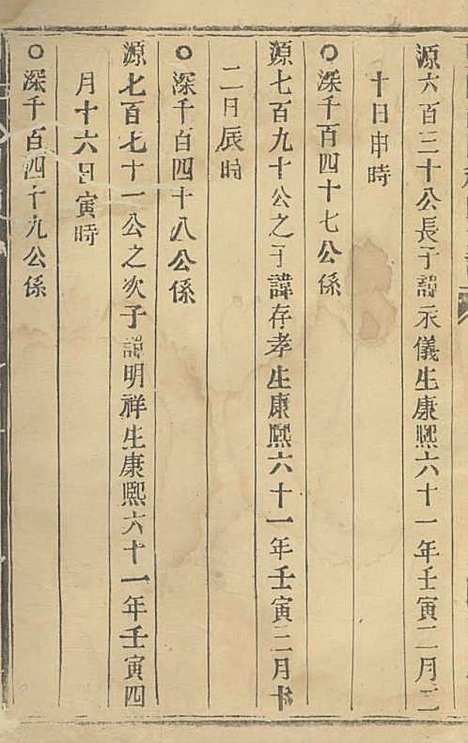 源六百三十公長子諱永儀生康熙六十一年壬寅二月二
十日申時
○深千百四十七公係
源七百九十公之子諱存孝生康熙六十一年壬寅二月十
二日辰時
○深千百四十八公係
源七百七十一公之次子諱明祥生康熙六十一年壬寅四
月十六日寅時
○深千百四十九公係